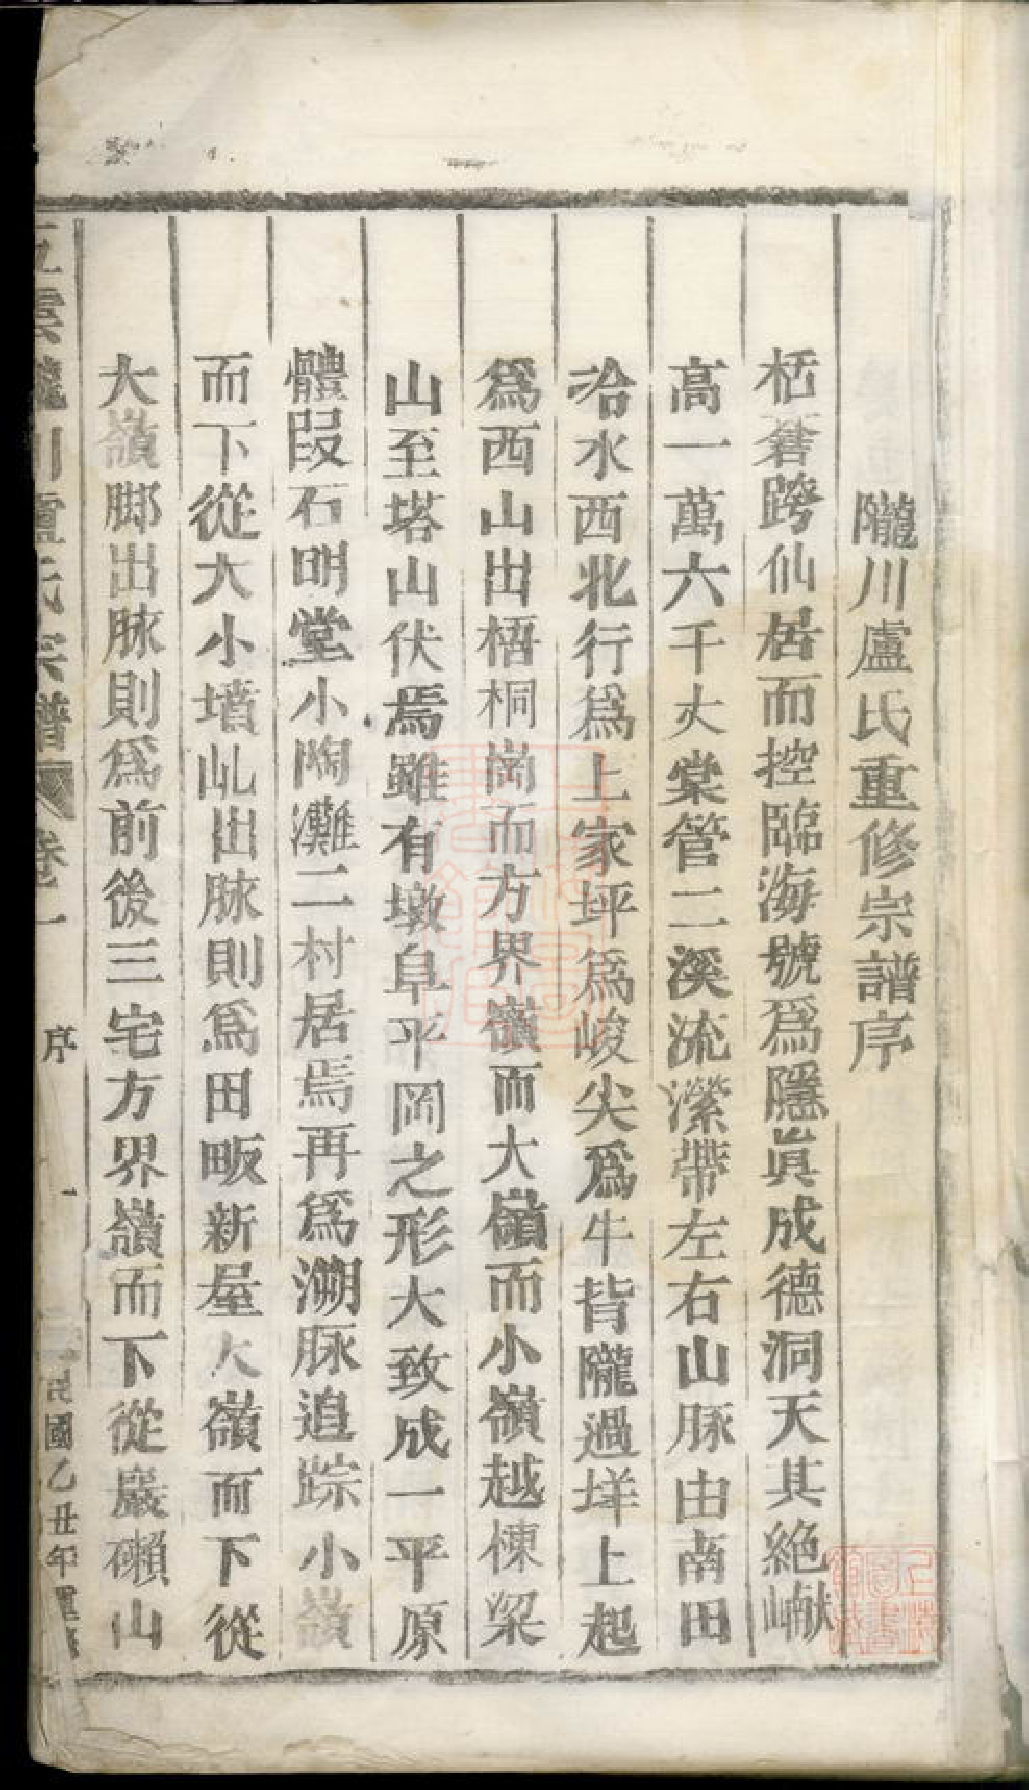 隴川盧氏重修宗譜序
栝蒼跨仙居而控臨海號爲隱眞成德洞天其絶巘
高一萬六千丈棠管二溪流瀠帶左右山脉由南田
冾水西北行爲上家坪爲峻尖爲牛背隴過垟上起
爲西山出梧桐崗而方界嶺而大嶺而小嶺越棟梁
山至塔山伏焉雖有墩阜平岡之形大致成一平原
體叚石明堂小陶灘二村居焉再爲溯脉追踪小嶺
而下從大小墳山出脉則爲田畈新屋大嶺而下從
大嶺脚出脉則爲前後三宅方界嶺而下從巖磜山
五雲隴川盧氏宗譜 卷一 序 一 民國乙丑年重修
上海圖書館藏